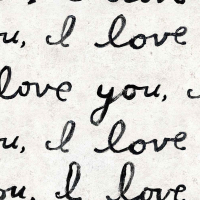 ou, I love
love you,
ou, I love
ou, I love